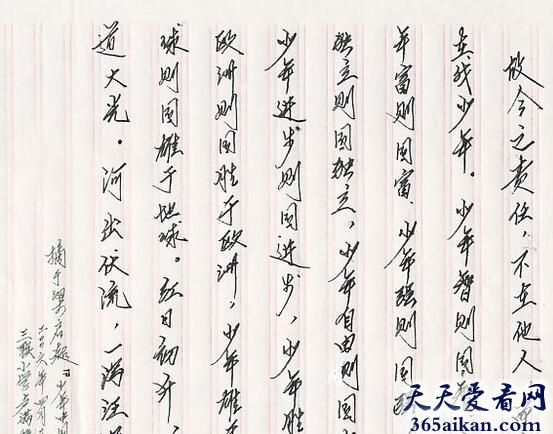 故今之责任，不在他人
在我少年。少年智则国
年富则国富、少年强则国
独立则国独立，少年自由则国
少年进步则国进步，少年胜
欧洲则国胜于欧洲，少年雄
球则国雄于地球。红日初升，
道大光。河出伏流，一泻汪
摘于梁启超
天天爱看网
365aikan.com